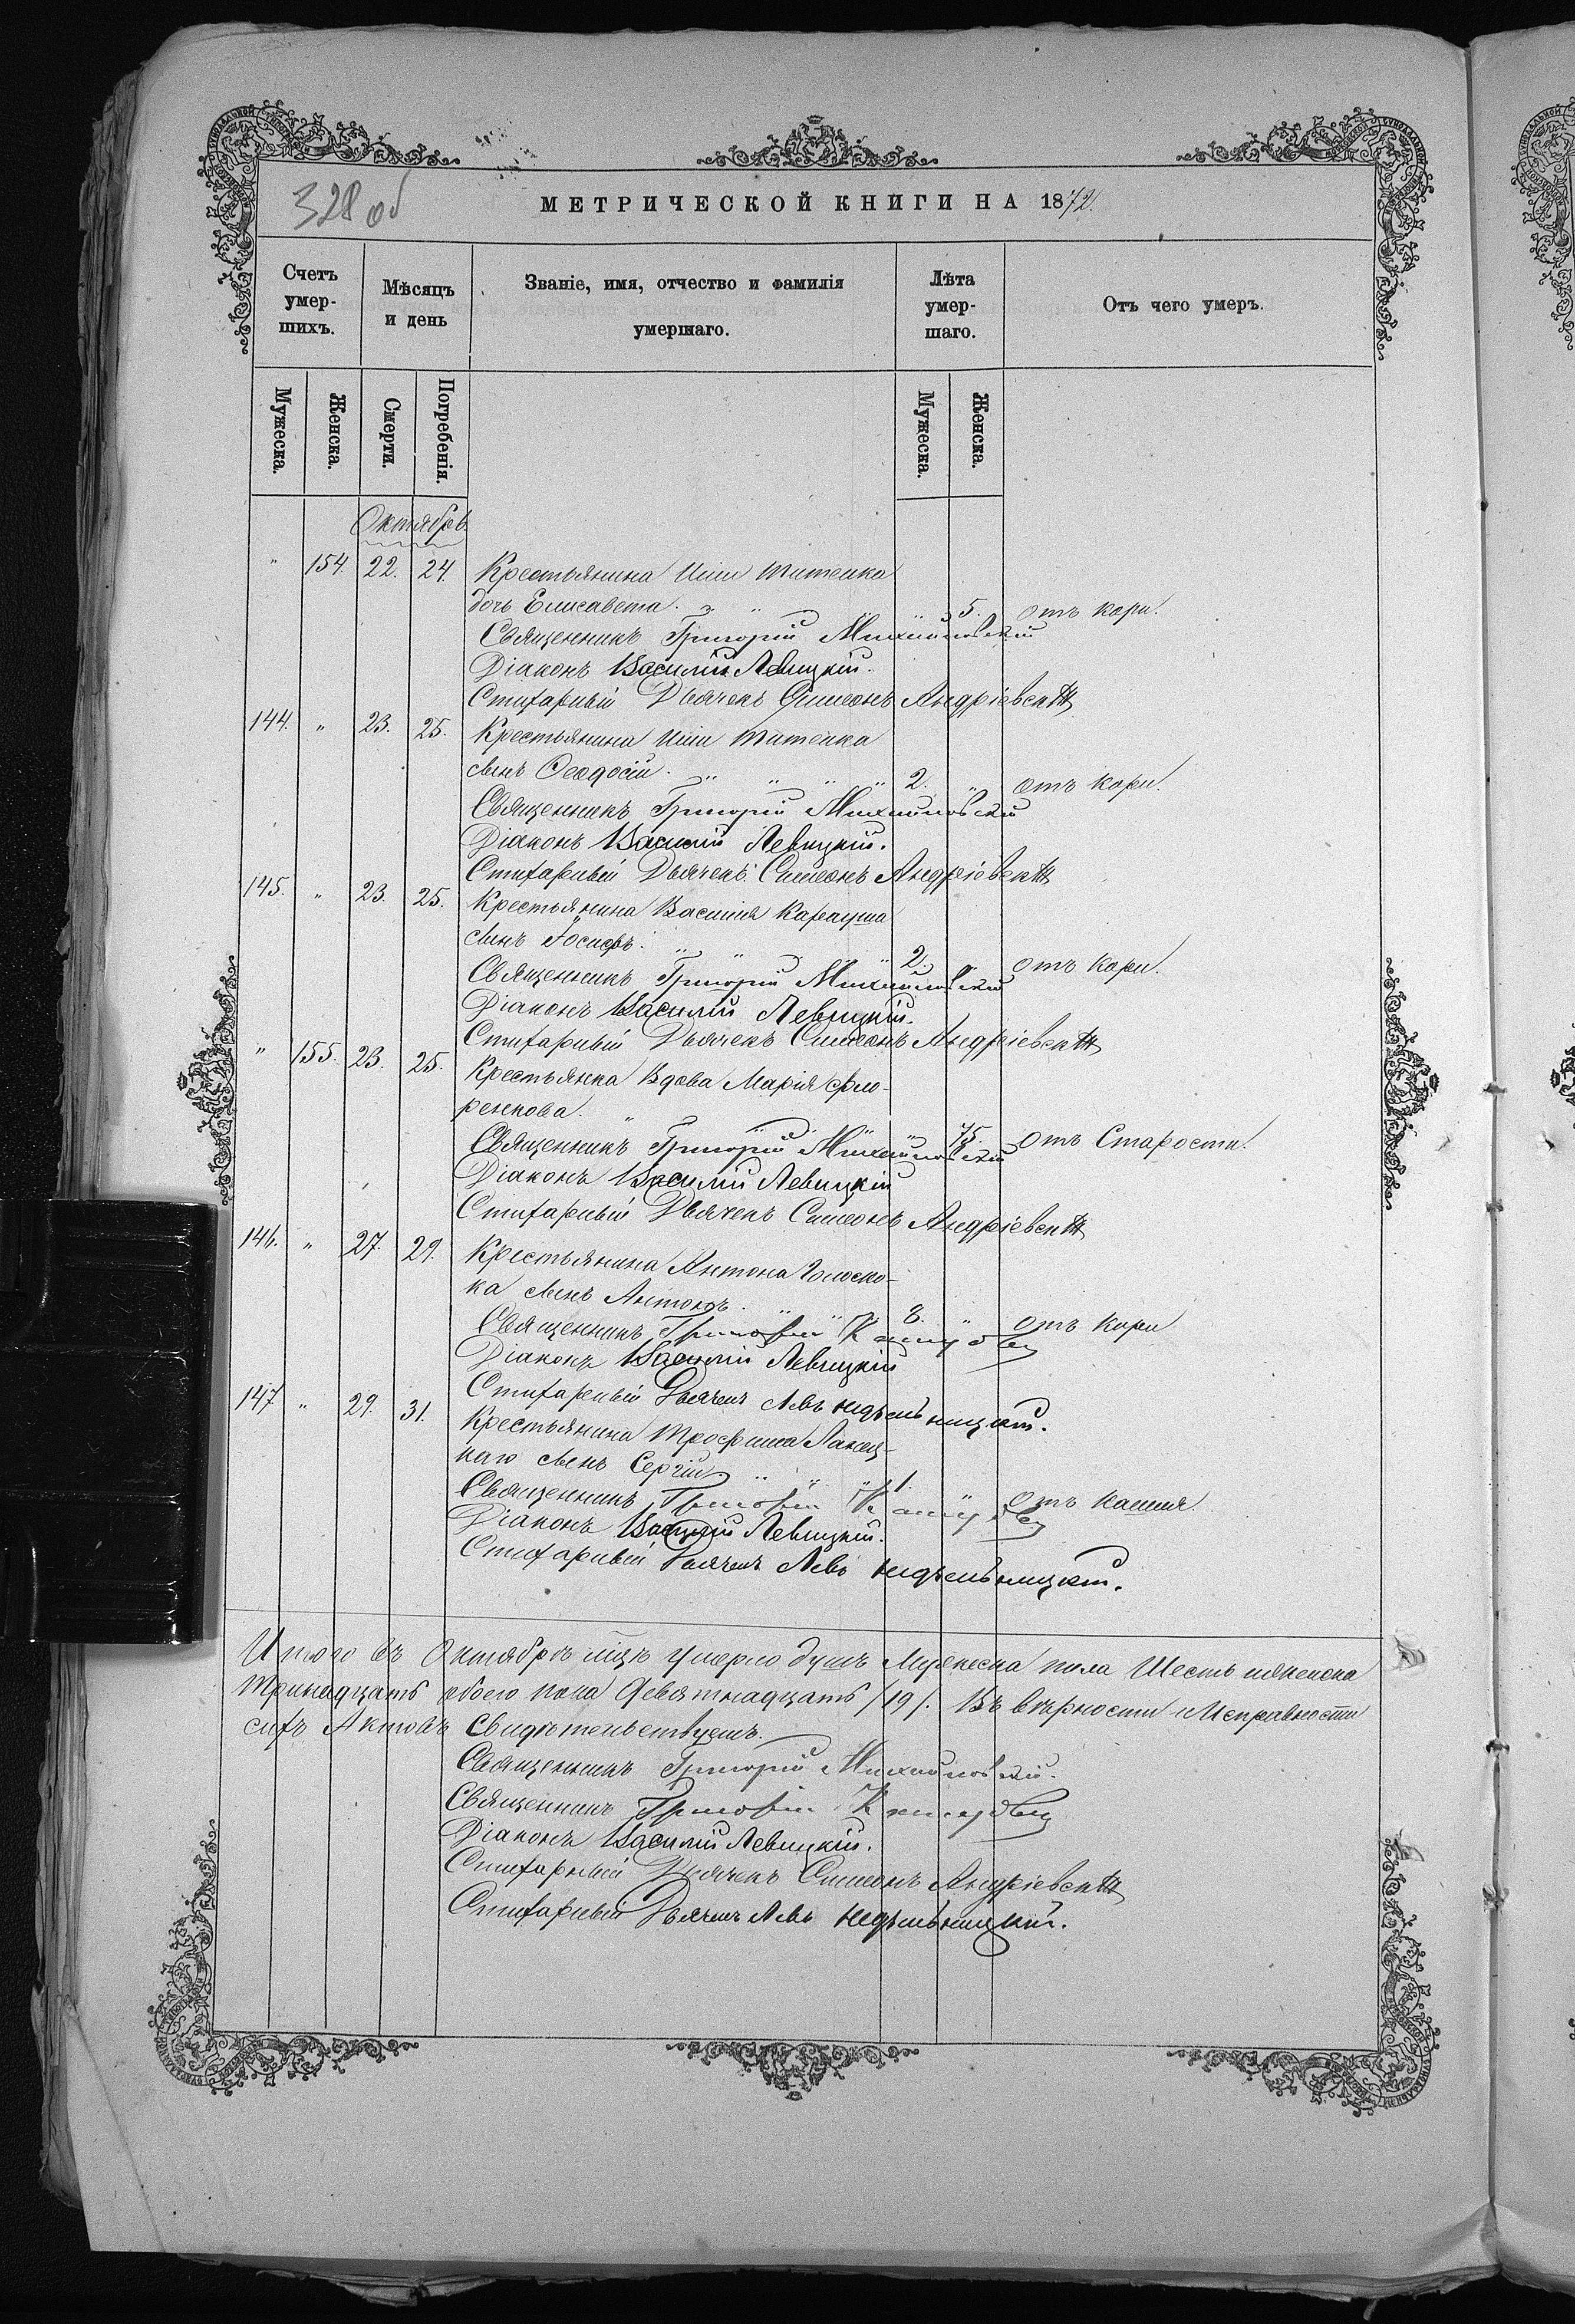 328 об
МЕТРИЧЕСКОЙ КНИГИ НА 1872.
Счетъ умер-шихъ.
Мѣсяцъ и день
Званіе, имя, отчество и фамилія умершаго.
Лѣта умер-шаго.
Отъ чего умеръ.
Мужеска.
Женска.
Смерти.
Погребенія.
Мужеска.
Женска.
Октябрь.
" 154. 22. 24. Крестьянина Ильи Титенка
дочь Елисавета. " " " 5. отъ кори.
Священникъ Григорій Михайловскій
Діаконъ Василій Левицкій.
Стихарный Дьячекъ Симеонъ Андріевскій
144. " 23. 25. Крестьянина Ильи Титенка
сынъ Ѳеодосій. " " " " 2. " отъ кори.
Священникъ Григорій Михайловскій
Діаконъ Василій Левицкій.
Стихарный Дьячекъ Симеонъ Андріевскій
145. " 23. 25. Крестьянина Василія Карауша
сынъ Іосифъ. " " " " 2. " отъ кори.
Священникъ Григорій Михайловскій
Діаконъ Василій Левицкій.
Стихарный Дьячекъ Симеонъ Андріевскій
" 155. 23. 25. Крестьянка Вдова Марія Фло-
ренкова. " " " " 75. отъ Старости.
Священникъ Григорій Михайловскій
Діаконъ Василій Левицкій
Стихарный Дьячекъ Симеонъ Андріевскій
146. " 27. 29. Крестьянина Антона Голоско-
ка сынъ Антонъ. " " 8. " отъ кори
Священникъ Григорій
Діаконъ Василій Левицкій
Стихарный Дьячекъ Левъ Недѣльницкій.
147 " 29. 31. Крестьянина Трофима
каго сынъ Сергій " " " 1. " отъ кашля
Священникъ Григорій
Діаконъ Василій Левицкій.
Стихарный Дьячекъ Левъ Недѣльницкій.
Итого въ Октябрѣ мцѣ умерло душъ Мужеска пола Шесть женска
тринадцать обоего пола девятнадцать /19/. Въ вѣрности и Исправности
сихъ Актовъ Свидѣтельствуемъ.
Священникъ Григорій Михайловскій.
Священникъ Григорій
Діаконъ Василій Левицкій.
Стихарный Дьячекъ Симеонъ Андріевскій
Стихарный Дьячекъ Левъ Недѣльницкій.